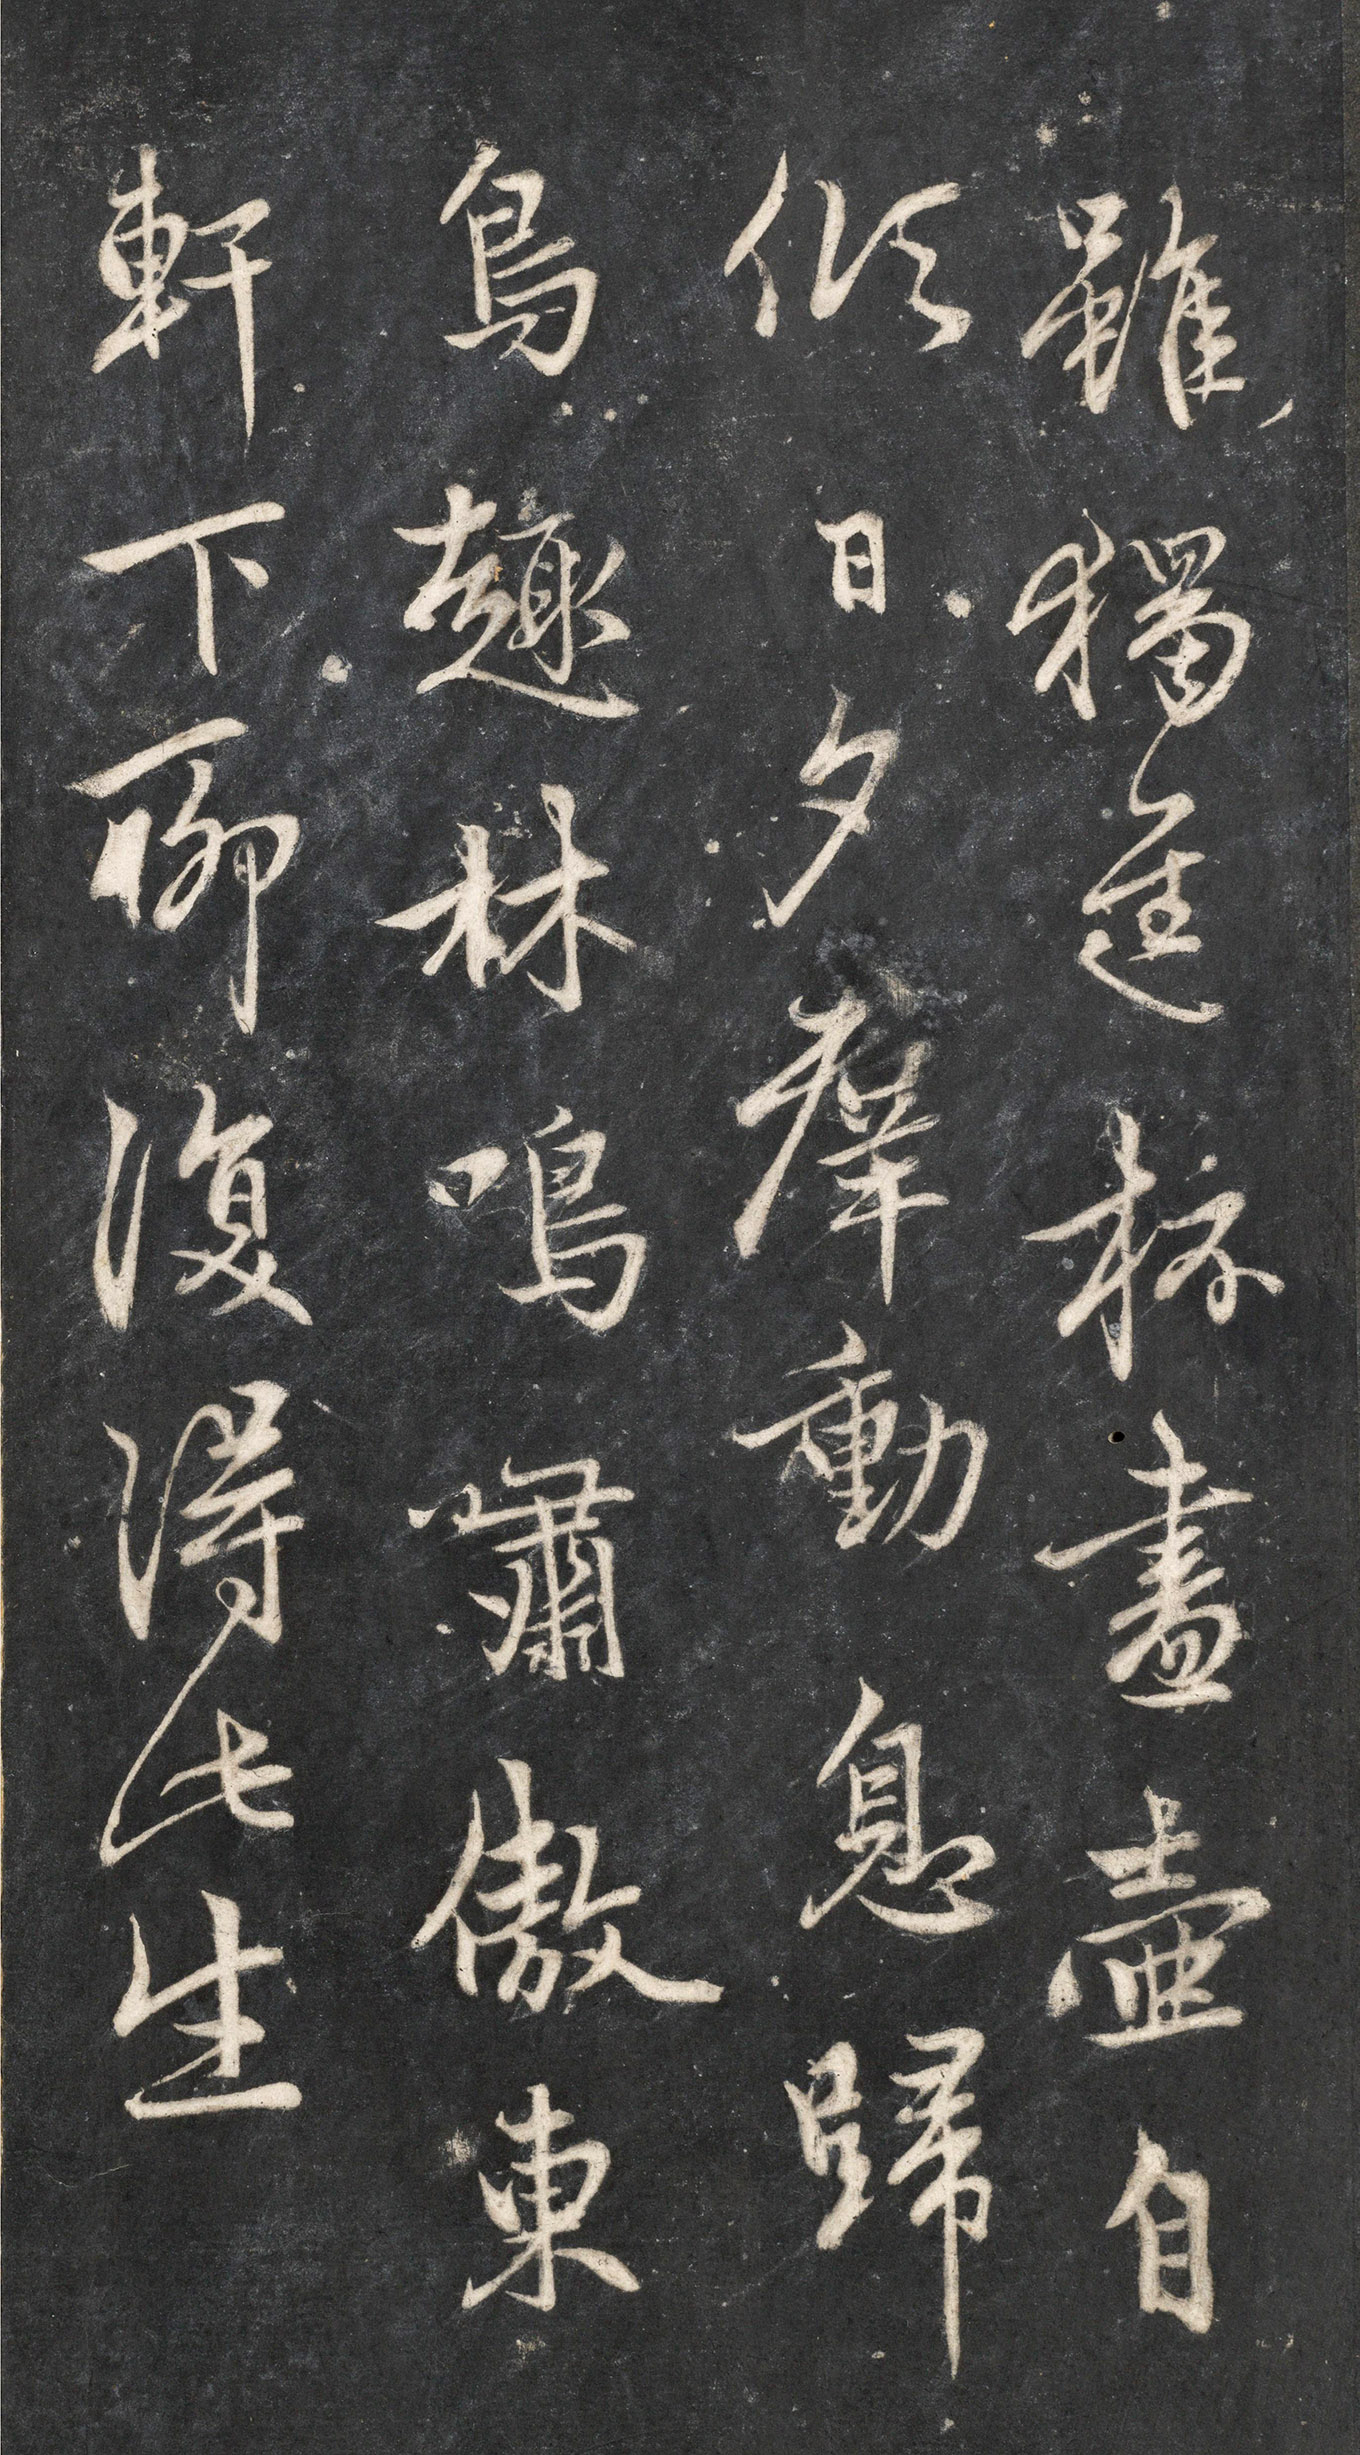 雖獨進杯盡壺自
傾日夕羣動息歸
鳥趣林鳴嘯傲東
軒下聊復得此生